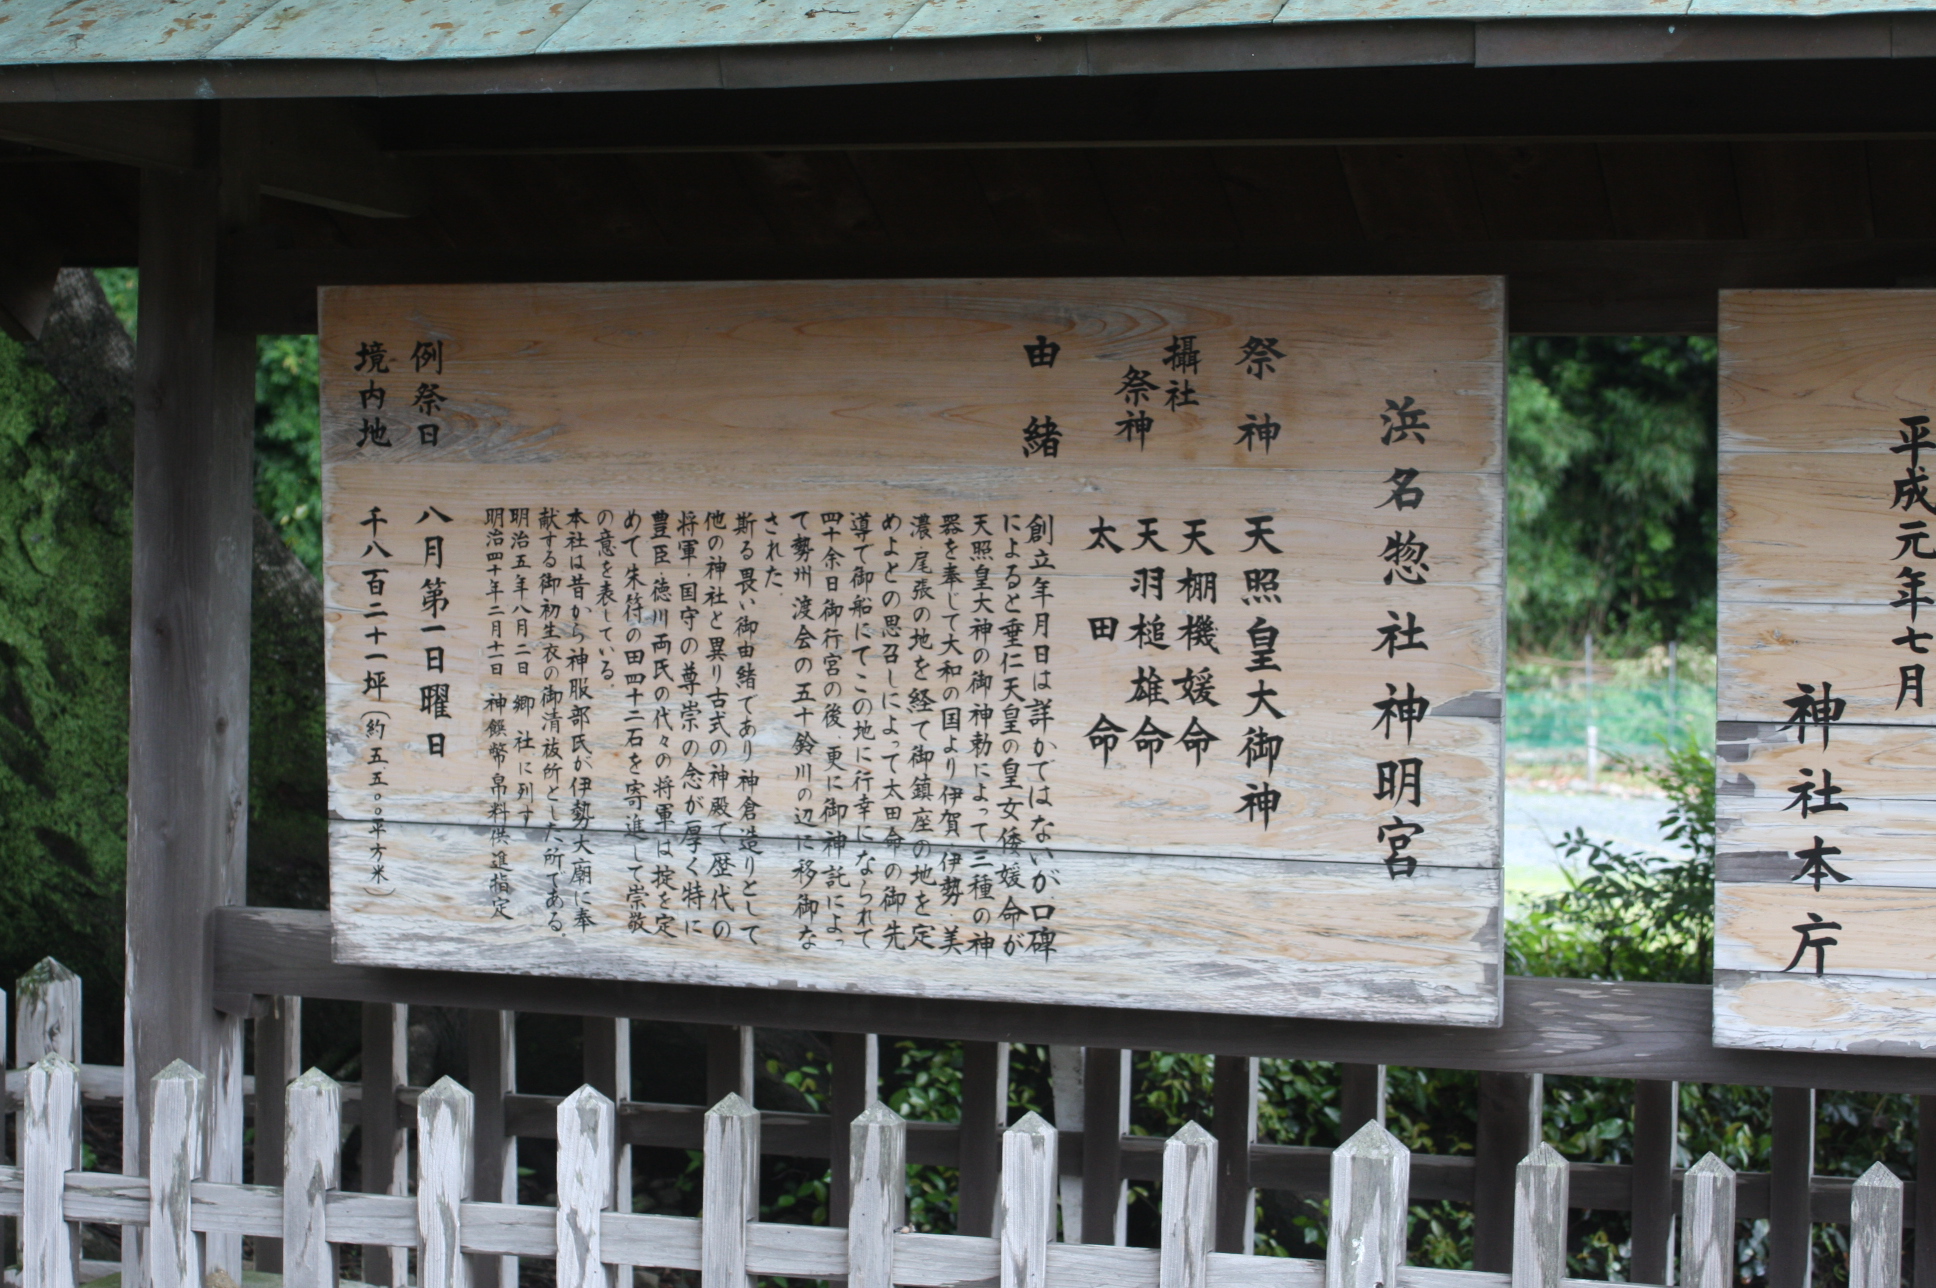 平成元年七月
神社本庁
浜名惣社神明宮
祭神 天照皇大御神
攝社
祭神
天棚機媛命
天羽槌雄命
太田命
由緒
創立年月日は詳かではないが、口碑
によると垂仁天皇の皇女倭媛命が
天照皇大神の御神勅によって三種の神
器を奉じて大和の国より伊賀・伊勢・美
濃・尾張の地を経て御鎮座の地を定
めよとの思召しによって太田命の御先
導で御船にてこの地に行幸になられて
四十余日御行宮の後、更に御神託によっ
て勢州渡会の五十鈴川の辺に移御な
された、
斯る畏い御由緒であり神倉造りとして
他の神社と異り古式の神殿で歴代の
将軍・国守の尊崇の念が厚く特に
豊臣・徳川両氏の代々の将軍は掟を定
めて朱符の田四十二石を寄進して崇敬
の意を表している。
本社は昔から神服部氏が伊勢大廟に奉
献する御初生衣の御清祓所とした所である
明治五年八月二日 郷社に列す
明治四十年二月十一日 神饌幣帛料供進指定
例祭日 八月第一日曜日
境内地 千八百二十一坪(約五.五〇〇平方米)